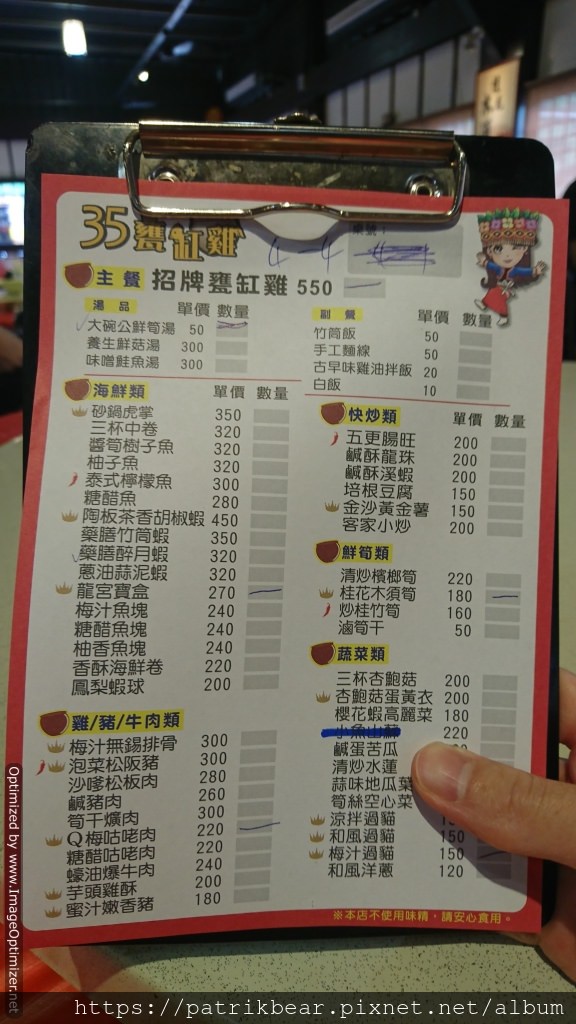 35甕缸雞
桌號:
4-4
主餐 招牌甕缸雞 550
湯品 單價 數量
大碗公鮮筍湯 50
養生鮮菇湯 300
味噌鮭魚湯 300
副餐 單價 數量
竹筒飯 50
手工麵線 50
古早味雞油拌飯 20
白飯 10
海鮮類 單價 數量
砂鍋虎掌 350
三杯中卷 320
醬筍樹子魚 320
柚子魚 320
泰式檸檬魚 300
糖醋魚 280
陶板茶香胡椒蝦 450
藥膳竹筒蝦 350
藥膳醉月蝦 320
蔥油蒜泥蝦 320
龍宮寶盒 270
梅汁魚塊 240
糖醋魚塊 240
柚香魚塊 240
香酥海鮮卷 220
鳳梨蝦球 200
雞/豬/牛肉類
梅汁無錫排骨 300
泡菜松阪豬 300
沙嗲松板肉 280
鹹豬肉 260
筍干爌肉 300
Q梅咕咾肉 220
糖醋咕咾肉 220
蠔油爆牛肉 240
芋頭雞酥 200
蜜汁嫩香豬 180
快炒類 單價 數量
五更腸旺 200
鹹酥龍珠 200
鹹酥溪蝦 200
培根豆腐 150
金沙黃金薯 150
客家小炒 200
鮮筍類
清炒檳榔筍 220
桂花木須筍 180
炒桂竹筍 160
滷筍干 50
蔬菜類
三杯杏鮑菇 200
杏鮑菇蛋黃衣 200
櫻花蝦高麗菜 180
小魚山蘇 220
鹹蛋苦瓜
清炒水蓮
蒜味地瓜葉
筍絲空心菜
涼拌過貓
和風過貓 150
梅汁過貓 150
和風洋蔥 120
※本店不使用味精,請安心食用。
Optimized by www.ImageOptimizer.net
https://patrikbear.pixnet.net/album